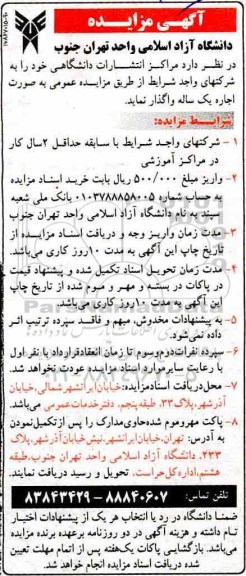 آگهی مزایده
دانشگاه آزاد اسلامی واحد تهران جنوب
در نظر دارد مراکز انتشارات دانشگاهی خود را به
شرکتهای واجد شرایط از طریق مزایده عمومی به صورت
اجاره یک ساله واگذار نماید.
شرایط مزایده:
۱- شرکتهای واجد شرایط با سابقه حداقل ۲سال کار
در مراکز آموزشی
۲- واریز مبلغ ۵۰۰/۰۰۰ ریال بابت خرید اسناد مزایده
به حساب شماره ۰۱۰۳۷۸۸۸۵۸۰۰۵ بانک ملی شعبه
سپند به نام دانشگاه آزاد اسلامی واحد تهران جنوب
۳- مدت زمان واریز وجه و دریافت اسناد مزایده از
تاریخ چاپ این آگهی به مدت ۱۰روز کاری می‌باشد.
۴- مدت زمان تحویل اسناد تکمیل شده و پیشنهاد قیمت
در پاکات در بسته و مهر و موم شده از تاریخ چاپ
این آگهی به مدت ۱۰روز کاری می‌باشد.
۵- به پیشنهادات مخدوش، مبهم و فاقد سپرده ترتیب اثر
داده نمی‌شود.
۶- سپرده نفرات‌دوم‌وسوم تا زمان انعقادقرارداد با نفر اول
با رعایت سایرموارد اسناد مزایده عودت نخواهد شد.
۷- محل‌دریافت اسنادمزایده:خیابان‌ایرانشهرشمالی،خیابان
آذرشهر،پلاک۲۳، طبقه‌پنجم، دفترخدمات‌عمومی می‌باشد
۸- پاکت مهروموم شده‌حاوی‌مدارک را پس ازتکمیل‌نمودن
به آدرس: تهران،خیابان‌ایرانشهر،نبش‌خیابان‌آذرشهر،پلاک
۲۳۳، دانشگاه آزاد اسلامی واحد تهران جنوب،طبقه
هشتم،اداره‌کل‌حراست، تحویل و رسید دریافت نمایند.
تلفن تماس: ۸۸۸۴۰۶۰۷ - ۸۳۸۴۳۴۲۹
ضمنا دانشگاه در رد یا انتخاب هر یک از پیشنهادات اختیار
تام داشته و هزینه آگهی در دو روزنامه برعهده برنده مزایده
می‌باشد. بازگشایی پاکات یک‌هفته پس از اتمام مهلت تعیین
شده دریافت اسناد مزایده انجام خواهد شد.